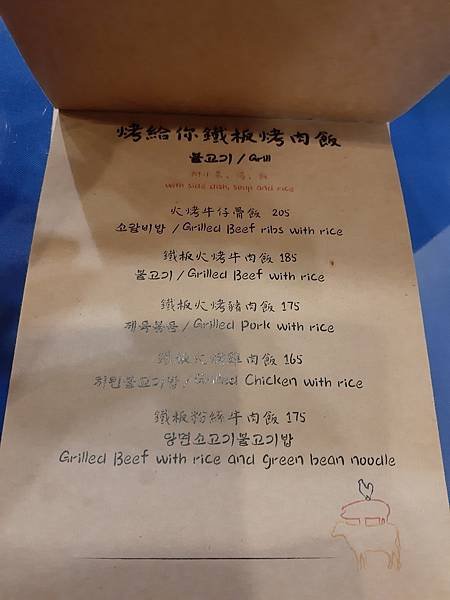 烤給你鐵板烤肉飯
불고기 / Grill
附小菜、湯、飯
with side dish, soup and rice
火烤牛仔骨飯 205
소갈비밥 / Grilled Beef ribs with rice
鐵板火烤牛肉飯 185
불고기 / Grilled Beef with rice
鐵板火烤豬肉飯 175
제육볶음 / Grilled Pork with rice
鐵板火烤雞肉飯 165
치킨불고기밥 / Grilled Chicken with rice
鐵板粉絲牛肉飯 175
당면소고기불고기밥
Grilled Beef with rice and green bean noodle